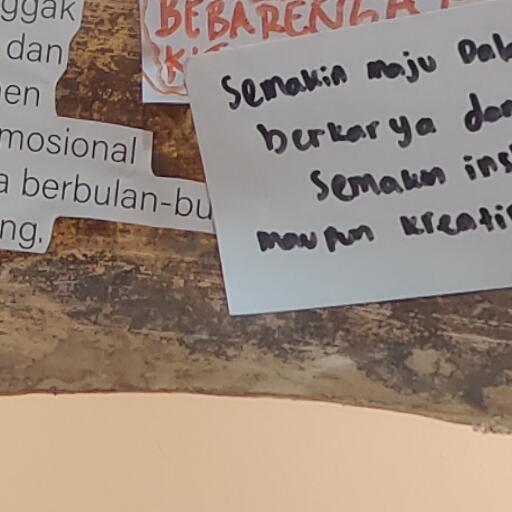 ggak
dan
en
mosional
a berbulan-bu
ng.
BEBARENGA
Semakin maju Dal
berkarya dan
Semakin ins
maupun kreati